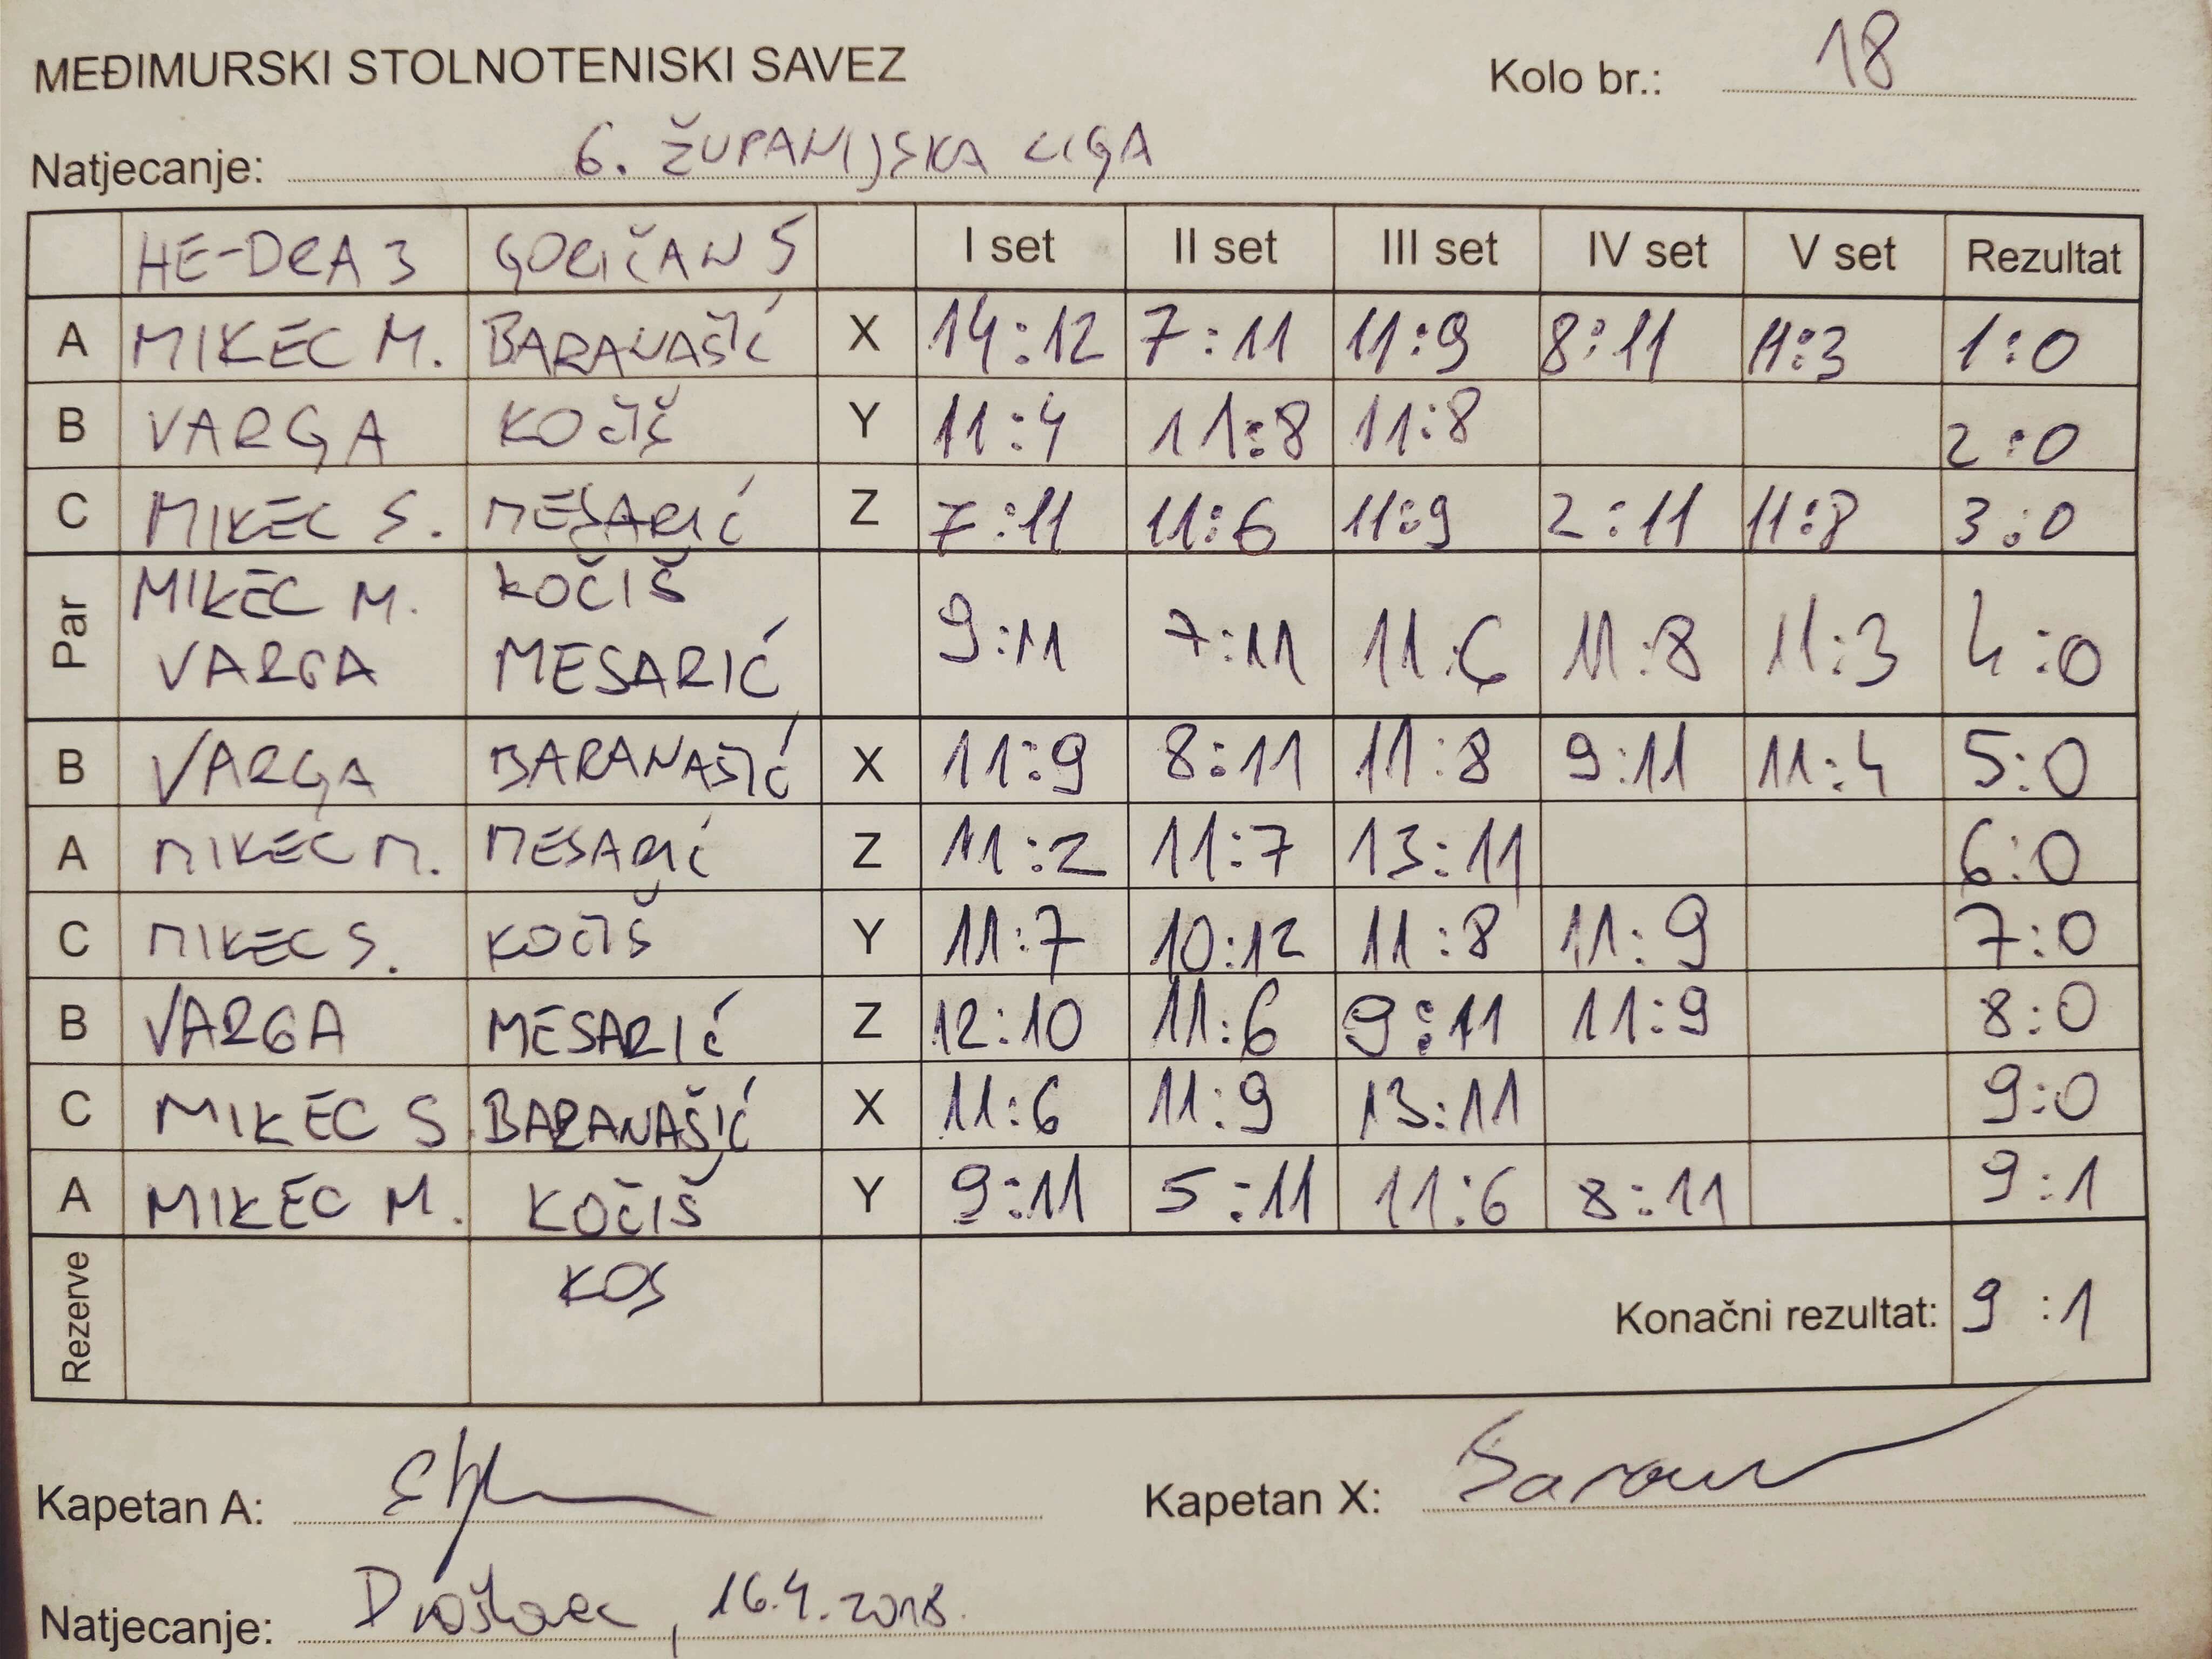 MEĐIMURSKI STOLNOTENISKI SAVEZ Kolo br.: 18
Natjecanje: 6. ŽUPANIJSKA LIGA
HE-DRA 3 GORIČAN 5 I set II set III set IV set V set Rezultat
A MIKEC M. BARANAŠIĆ X 14:12 7:11 11:9 8:11 11:3 1:0
B VARGA KOČIŠ Y 11:4 11:8 11:8 2:0
C MIKEC S. MESARIĆ Z 7:11 11:6 11:9 2:11 11:8 3:0
Par MIKEC M. KOČIŠ
VARGA MESARIĆ 9:11 7:11 11:6 11:8 11:3 4:0
B VARGA BARANAŠIĆ X 11:9 8:11 11:8 9:11 11:4 5:0
A MIKEC M. MESARIĆ Z 11:2 11:7 13:11 6:0
C MIKEC S. KOČIŠ Y 11:7 10:12 11:8 11:9 7:0
B VARGA MESARIĆ Z 12:10 11:6 9:11 11:9 8:0
C MIKEC S. BARANAŠIĆ X 11:6 11:9 13:11 9:0
A MIKEC M. KOČIŠ Y 9:11 5:11 11:6 8:11 9:1
Rezerve KOS Konačni rezultat: 9:1
Kapetan A: Kapetan X:
Natjecanje: 16.4.2018.